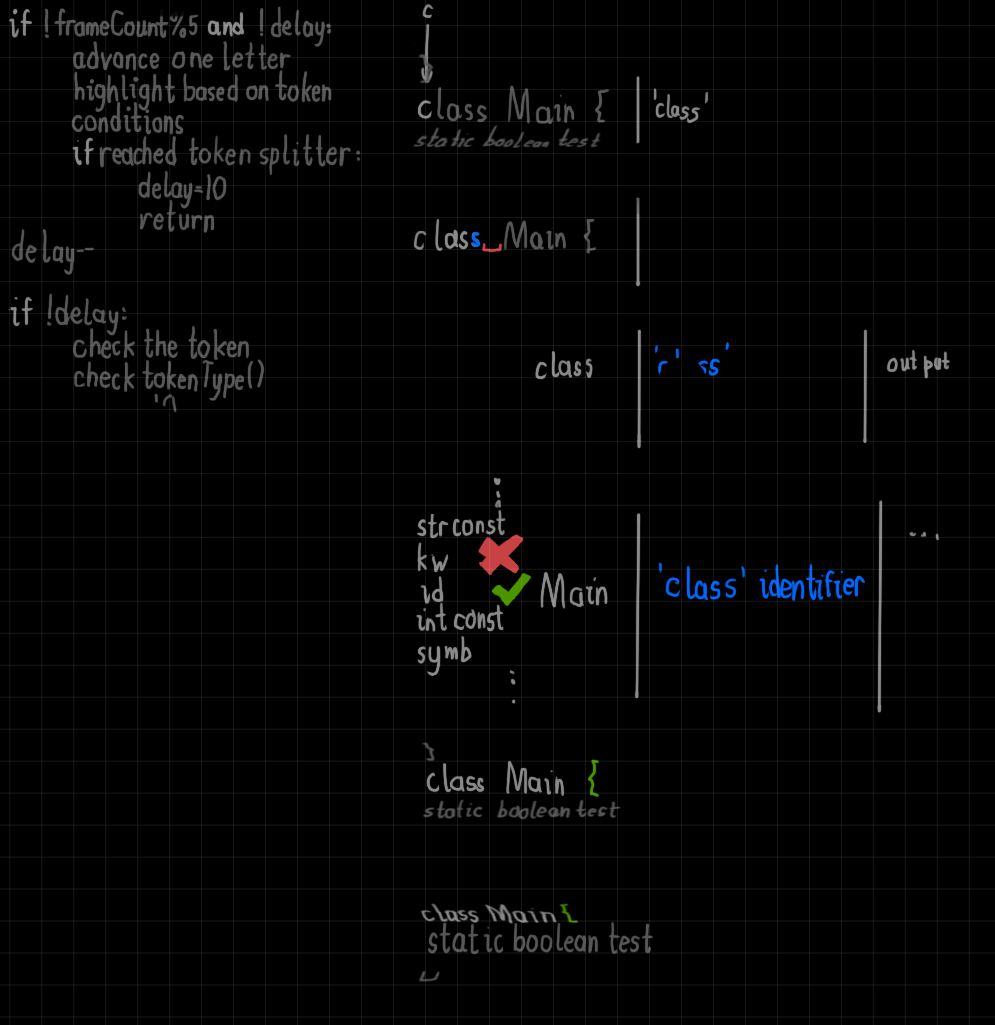 if !frameCount%5 and !delay:
advance one letter
highlight based on token
conditions
if reached token splitter:
delay=10
return
delay--
if !delay:
check the token
check tokenType()
c
class Main { 'class'
static boolean test
class␣Main {
class 'r' ss' output
str const
kw
id
int const
symb
Main 'class' identifier ...
}
class Main {
static boolean test
class Main {
static boolean test